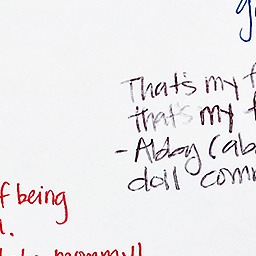 That's my f
that's my f
- Abbay (ab
doll comm
f being
to mommy!!